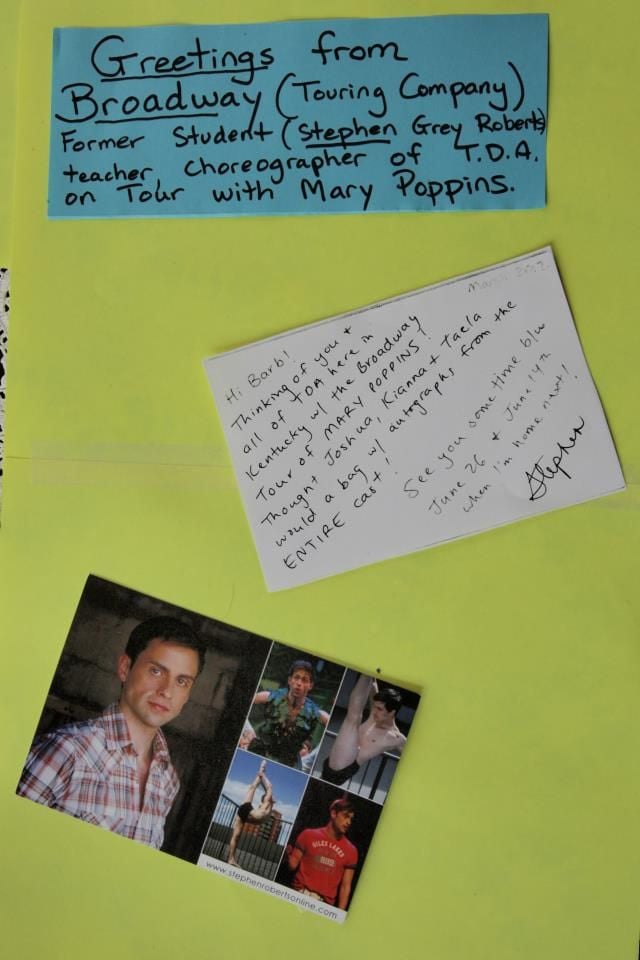 Greetings from
Broadway (Touring Company)
Former Student (Stephen Grey Roberts)
teacher, choreographer of T.D.A.
on Tour with Mary Poppins.
Hi Barb!
Thinking of you +
all of TDA here in
Kentucky w/ the Broadway
Tour of MARY POPPINS!
Thought Joshua, Kianna + Taela
would a bag w/ autographs from the
ENTIRE cast!
See you some time b/w
June 26 + June 14th
when I'm home next!
Stephen
www.stephenrobertsonline.com